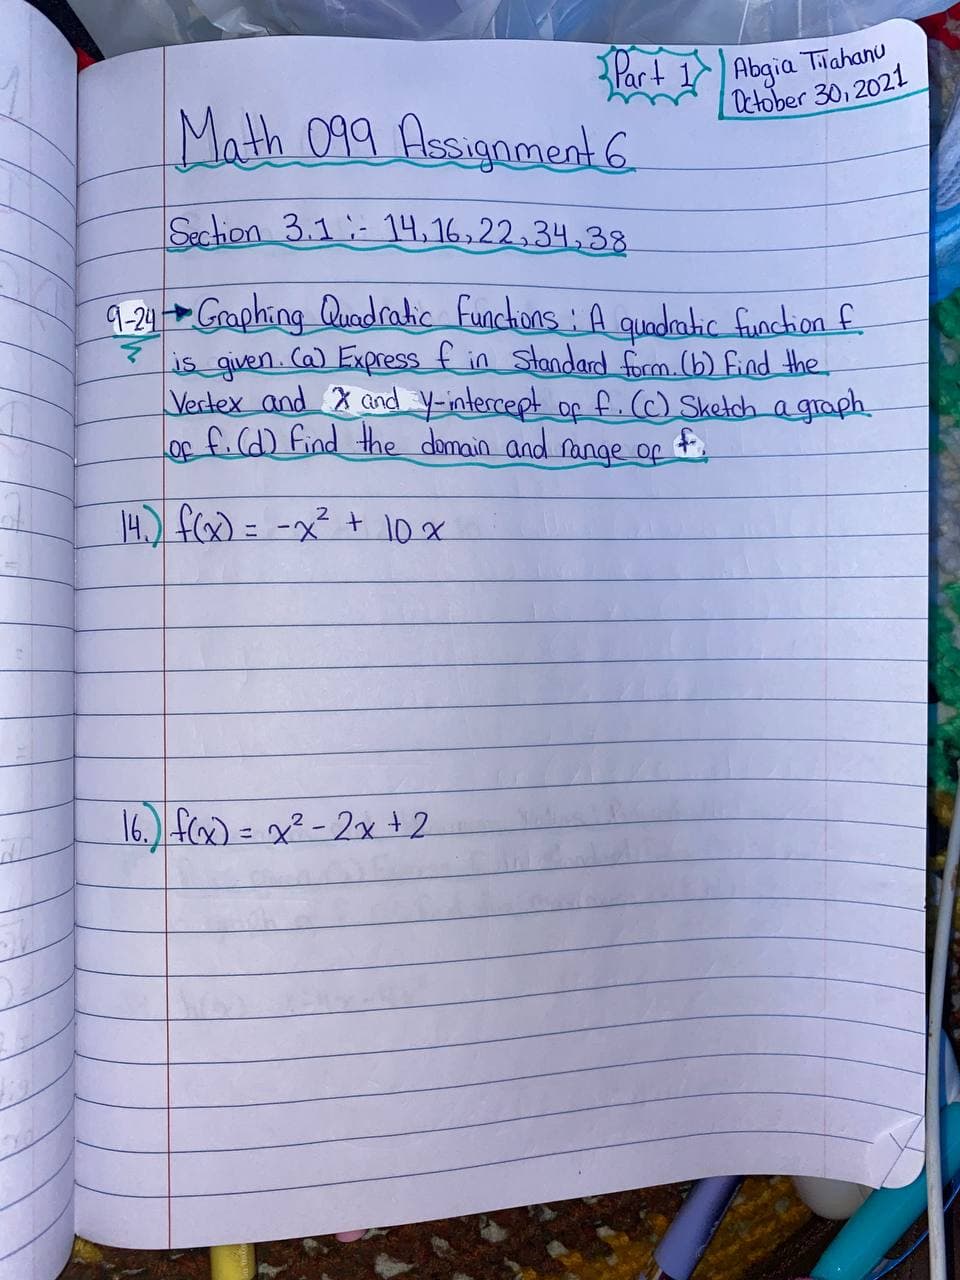 Part 1
Abgia Tilahanu
October 30, 2021
Math 099 Assignment 6
Section 3.1 :- 14, 16, 22, 34, 38
9-24 → Graphing Quadratic Functions : A quadratic function f
is given. (a) Express f in Standard form. (b) Find the
Vertex and x and y-intercept of f. (c) Sketch a graph
of f. (d) Find the domain and range of f.
14.) f(x) = -x² + 10x
16.) f(x) = x² - 2x + 2